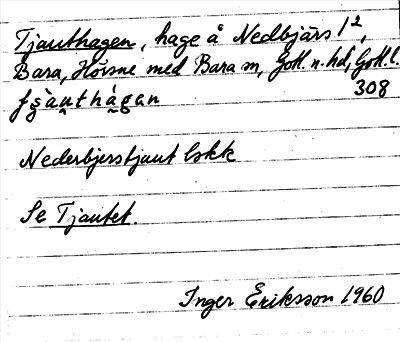 Tjauthagen, hage å Nedbjärs 1²,
Bara, Hörsne med Bara sn, Gotl. n. hd, Gotl. l.
308
Nederbjerstjaut lskk
Se Tjautet.
Inger Eriksson 1960